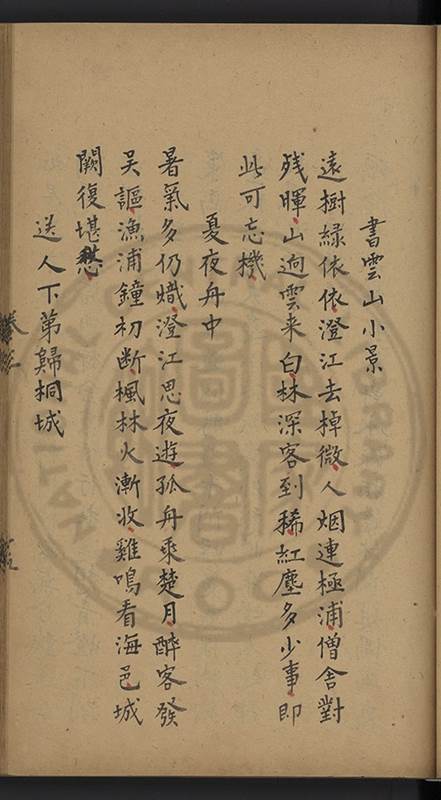 書雲山小景
遠樹綠依依澄江去棹微人烟連極浦僧舍對
殘暉山迥雲来白林深客到稀紅塵多少事即
此可忘機
夏夜舟中
暑氣多仍熾澄江思夜遊孤舟乘楚月醉客發
吴謳漁浦鐘初断楓林火漸收雞鳴看海邑城
闕復堪愁
送人下第歸桐城